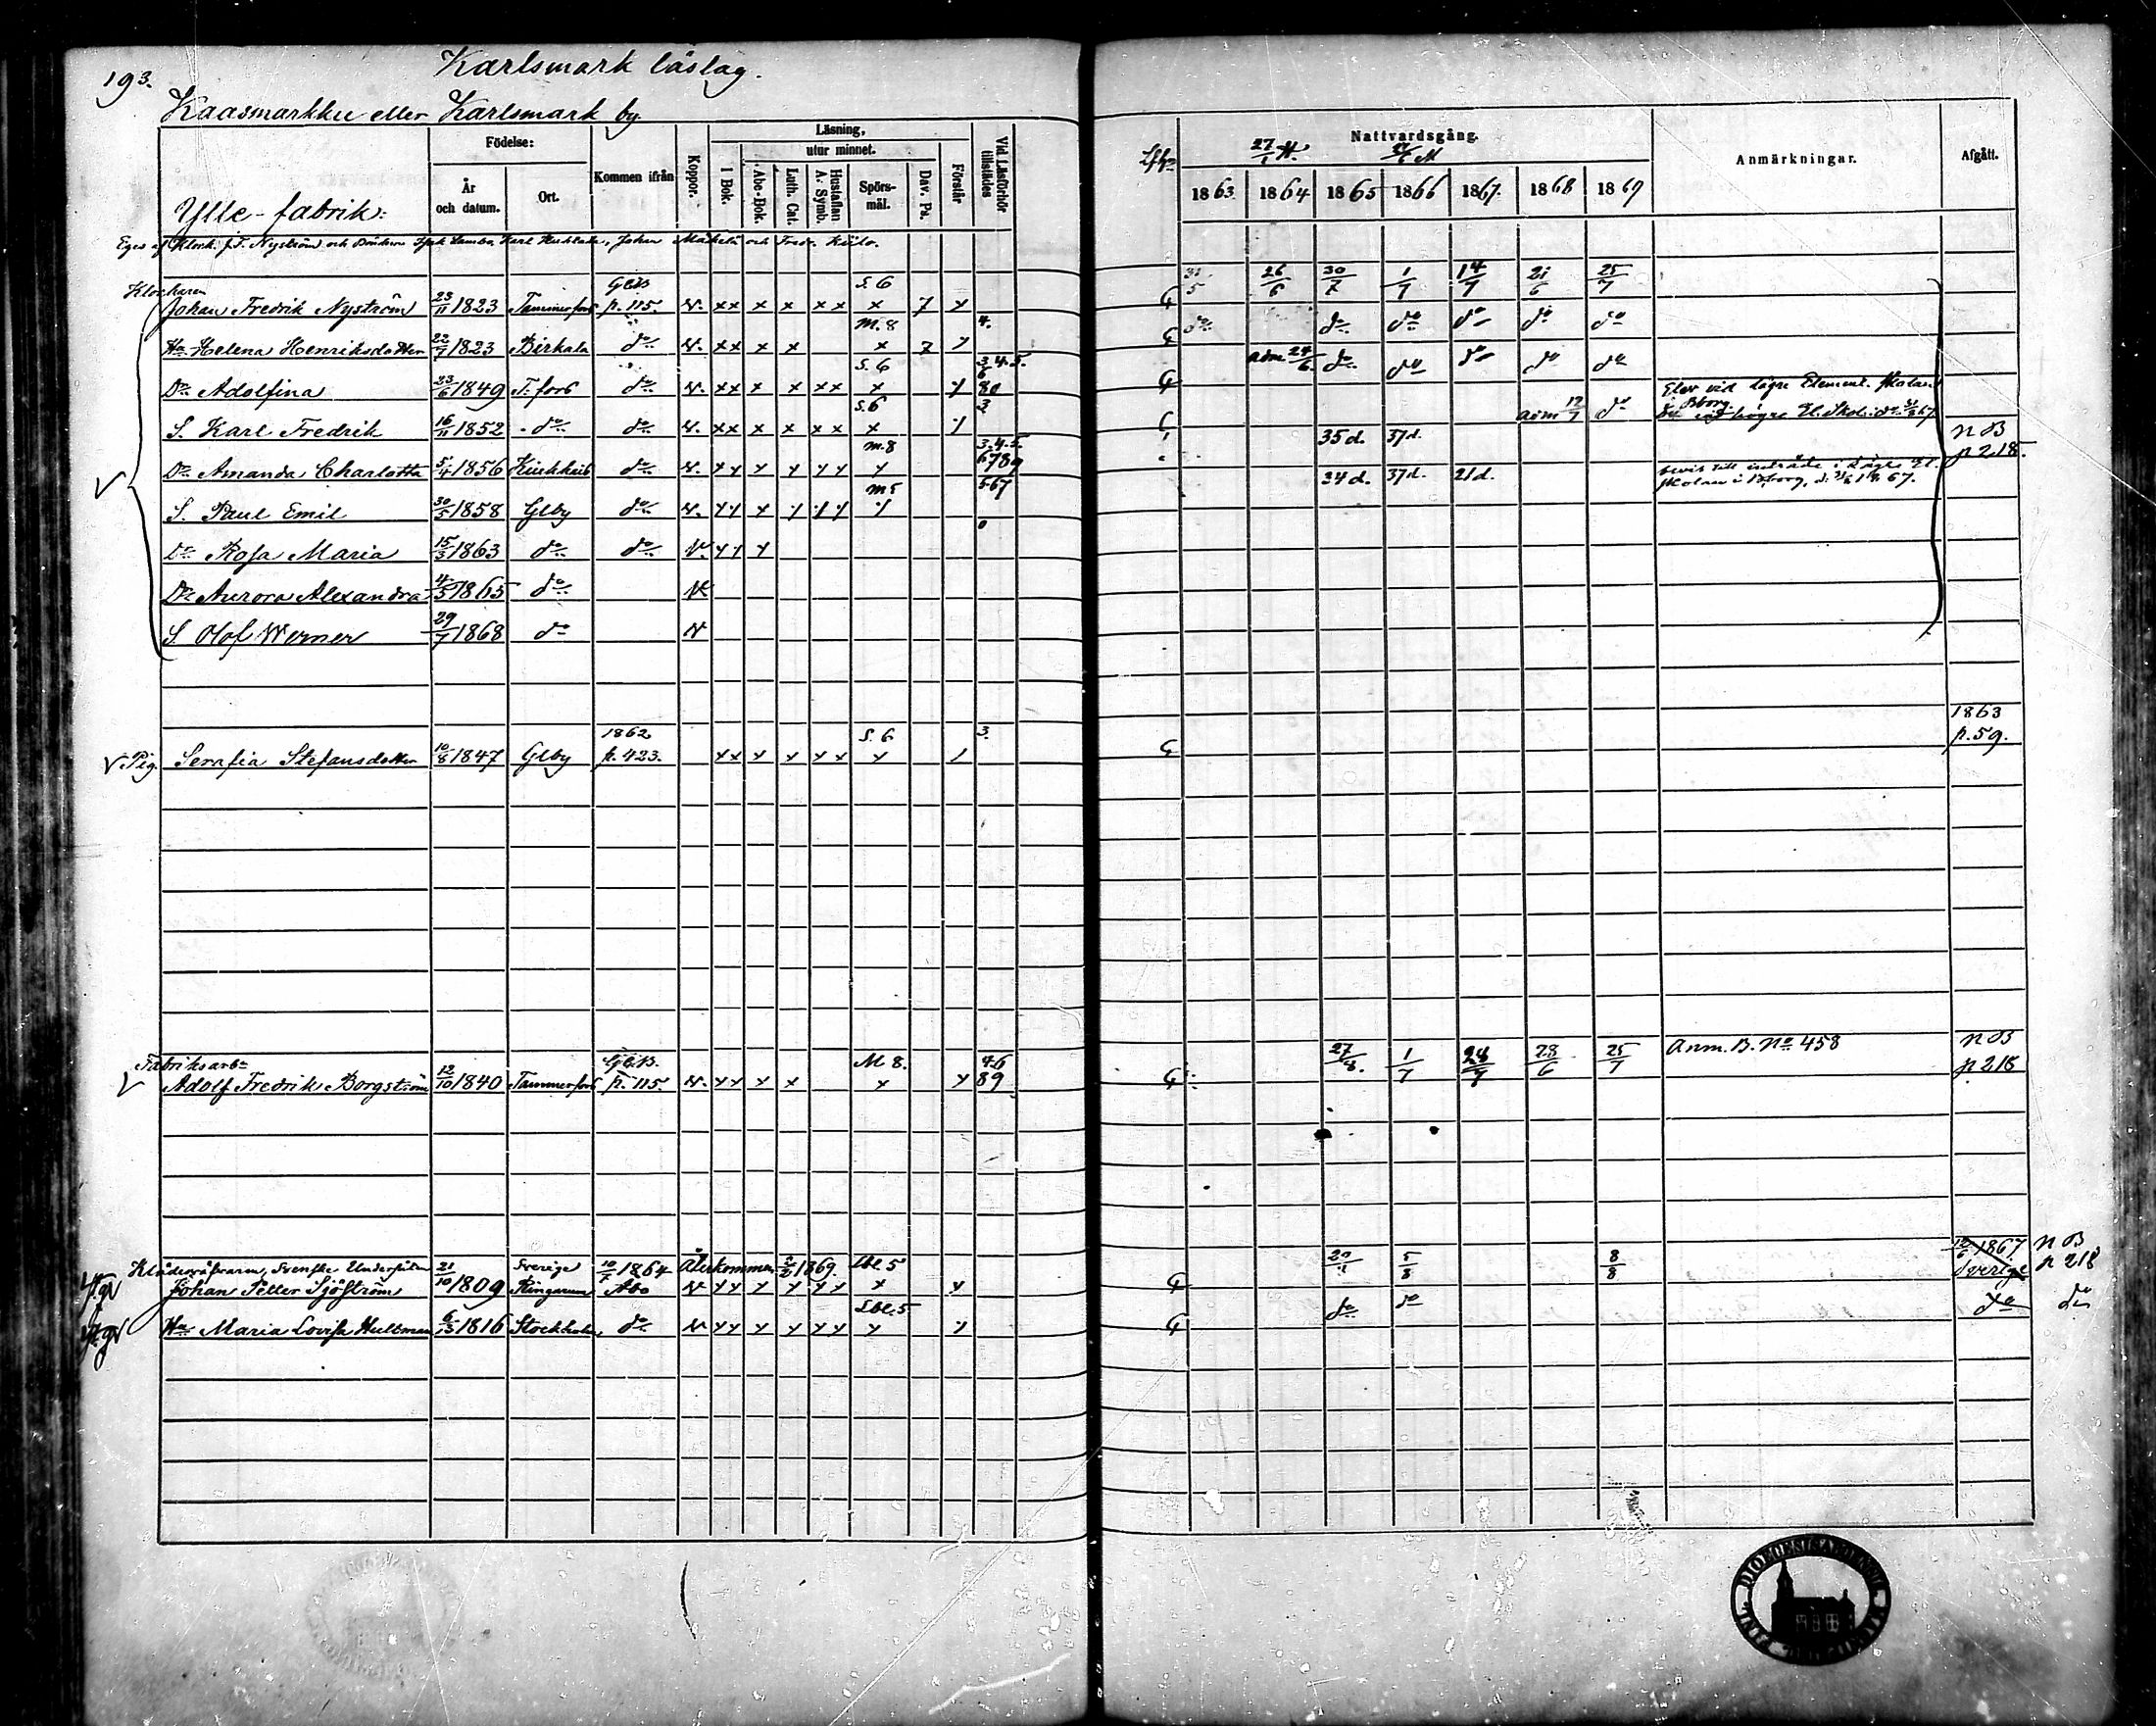 193.
Karlsmark läslag.
Kaasmarkku eller Karlsmark by.
Ylle-fabrik:
Födelse:
År och datum.
Ort.
Kommen ifrån
Koppor.
Läsning,
utur minnet.
I Bok.
Abc-Bok.
Luth. Cat.
Hustaflan A. Symb.
Spörs-mål.
Dav. Ps.
Förstår
Vid Läsförhör tillstädes
Nattvardsgång.
27/1 H.
1863. 1864 1865 1866 1867. 1868 1869
Anmärkningar.
Afgått.
Eges af Klock. J. F. Nyström och Bönderne Karl Johan Mäkelä och Fredr.
Klockaren GlB S. 6 31/5 26/6 30/7 1/7 14/7 21/6 25/7
Johan Fredrik Nyström 23/11 1823 Tammerfors p. 115. v. xx x x xx x 7 x
M. 8 4. do do do do do do
Hu Helena Henriksdotter 22/7 1823 Birkala do v. xx x x x 7 x
S. 6 3.4.5. adm 24/6 do do do do do
Dr Adolfina 23/6 1849 T.fors do v. xx x x xx x x 80
S. 6 3 adm 12/7 do Elev vid lägre Element. skolan i Bborg
S. Karl Fredrik 16/11 1852 do do v. xx x x xx x x vid högre El. Skol.
M. 8 3.4.5. 35 d. 37 d. NB p 218.
Dr Amanda Charlotta 5/4 1856 do v. xx x x xx x 6789
M 5 567 24 d. 37 d. 21 d. bevis till inträde i Lägre El. skolan i Bborg, d. 67.
S. Paul Emil 30/5 1858 Glby do v. xx x x xx x
Dr Rosa Maria 15/3 1863 do do v. xx x 0
Dr Aurora Alexandra 4/5 1865 do v
S. Olof Werner 29/7 1868 do v
1862 S. 6 3. 1863
Pig. Serafia Stefansdotter 10/8 1847 Glby p. 423. xx x x xx x x p. 59.
Fabriksarbr GlB. M 8. 46 1/7 28/6 25/7 Anm. B. No 458 NB
Adolf Fredrik Borgström 12/10 1840 Tammerfors p. 115. v. xx x x x x 89 p 218
Klädesväfvaren, Svenske Undersåten 21/10 Sverige 10/7 1864 Återkommen 1869. Sbl. 5 5/8 8/8 1867 NB
Johan Petter Sjöström 1809 Ringarum Åbo v xx x x xx x x Sverige p 218
Sbl. 5 do do do do
Hu Maria Lovisa Hultman 6/3 1816 Stockholm do v xx x x xx x x